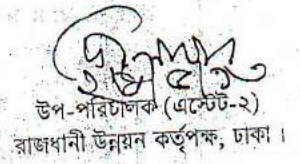 উপ-পরিচালক (এস্টেট-২)
রাজধানী উন্নয়ন কর্তৃপক্ষ, ঢাকা ।